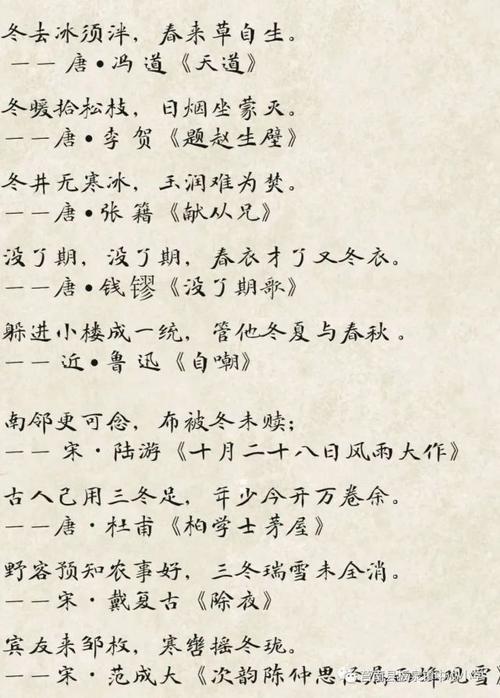 冬去冰须泮，春来草自生。
—— 唐•冯 道《天道》
冬暖拾松枝，日烟坐蒙灭。
——唐•李 贺《题赵生壁》
冬井无寒冰，玉润难为焚。
——唐•张 籍《献从兄》
没了期，没了期，春衣才了又冬衣。
——唐•钱镠《没了期歌》
躲进小楼成一统，管他冬夏与春秋。
—— 近•鲁 迅《自嘲》
南邻更可念，布被冬未赎；
—— 宋·陆游《十月二十八日风雨大作》
古人己用三冬足，年少今开万卷余。
——唐·杜甫《柏学士茅屋》
野客预知农事好，三冬瑞雪未全消。
——宋·戴复古《除夜》
宾友来邹枚，寒辔摇冬珑。
——宋·范成大《次韵陈仲思经属西峰观雪》